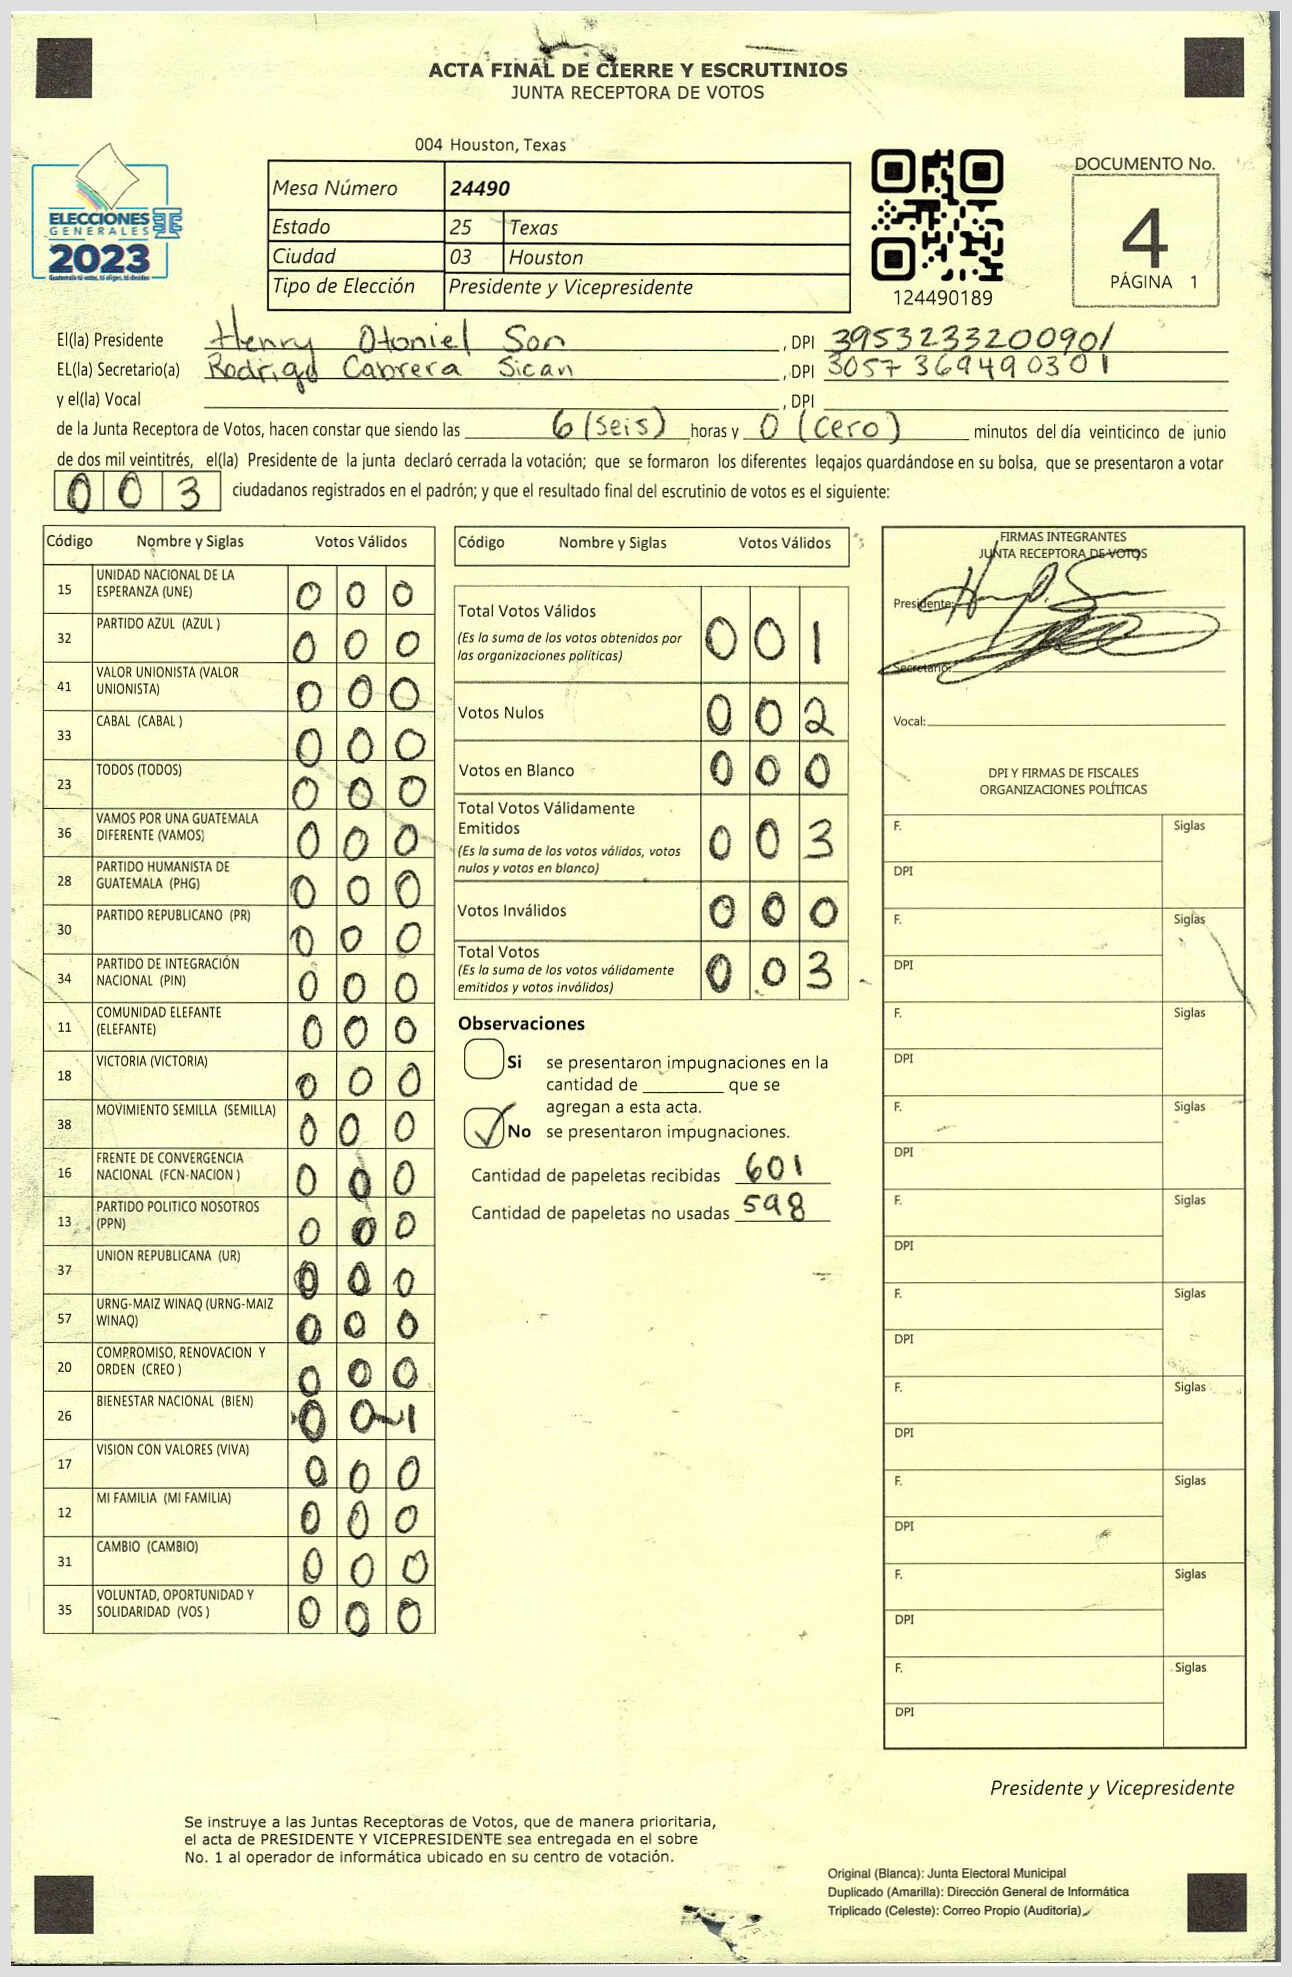 ACTA FINAL DE CIERRE Y ESCRUTINIOS
JUNTA RECEPTORA DE VOTOS
004 Houston, Texas
ELECCIONES
GENERALES
2023
Mesa Número 24490
Estado 25 Texas
Ciudad 03 Houston
Tipo de Elección Presidente y Vicepresidente
124490189
DOCUMENTO No.
4
PÁGINA 1
El(la) Presidente Henry Otoniel Son , DPI 3953233200901
EL(la) Secretario(a) Rodrigo Cabrera Sican , DPI 3057369490301
y el(la) Vocal , DPI
de la Junta Receptora de Votos, hacen constar que siendo las 6 (seis) horas y 0 (cero) minutos del día veinticinco de junio
de dos mil veintitrés, el(la) Presidente de la junta declaró cerrada la votación; que se formaron los diferentes legajos guardándose en su bolsa, que se presentaron a votar
0 0 3 ciudadanos registrados en el padrón; y que el resultado final del escrutinio de votos es el siguiente:
Código Nombre y Siglas Votos Válidos
15 UNIDAD NACIONAL DE LA
ESPERANZA (UNE) 0 0 0
32 PARTIDO AZUL (AZUL ) 0 0 0
41 VALOR UNIONISTA (VALOR
UNIONISTA) 0 0 0
33 CABAL (CABAL ) 0 0 0
23 TODOS (TODOS) 0 0 0
36 VAMOS POR UNA GUATEMALA
DIFERENTE (VAMOS) 0 0 0
28 PARTIDO HUMANISTA DE
GUATEMALA (PHG) 0 0 0
30 PARTIDO REPUBLICANO (PR) 0 0 0
34 PARTIDO DE INTEGRACIÓN
NACIONAL (PIN) 0 0 0
11 COMUNIDAD ELEFANTE
(ELEFANTE) 0 0 0
18 VICTORIA (VICTORIA) 0 0 0
38 MOVIMIENTO SEMILLA (SEMILLA) 0 0 0
16 FRENTE DE CONVERGENCIA
NACIONAL (FCN-NACION ) 0 0 0
13 PARTIDO POLITICO NOSOTROS
(PPN) 0 0 0
37 UNION REPUBLICANA (UR) 0 0 0
57 URNG-MAIZ WINAQ (URNG-MAIZ
WINAQ) 0 0 0
20 COMPROMISO, RENOVACION Y
ORDEN (CREO ) 0 0 0
26 BIENESTAR NACIONAL (BIEN) 0 0 1
17 VISION CON VALORES (VIVA) 0 0 0
12 MI FAMILIA (MI FAMILIA) 0 0 0
31 CAMBIO (CAMBIO) 0 0 0
35 VOLUNTAD, OPORTUNIDAD Y
SOLIDARIDAD (VOS ) 0 0 0
Código Nombre y Siglas Votos Válidos
Total Votos Válidos 0 0 1
(Es la suma de los votos obtenidos por
las organizaciones políticas)
Votos Nulos 0 0 2
Votos en Blanco 0 0 0
Total Votos Válidamente
Emitidos 0 0 3
(Es la suma de los votos válidos, votos
nulos y votos en blanco)
Votos Inválidos 0 0 0
Total Votos 0 0 3
(Es la suma de los votos válidamente
emitidos y votos inválidos)
Observaciones
Si se presentaron impugnaciones en la
cantidad de ________ que se
agregan a esta acta.
No se presentaron impugnaciones.
Cantidad de papeletas recibidas 601
Cantidad de papeletas no usadas 598
FIRMAS INTEGRANTES
JUNTA RECEPTORA DE VOTOS
Presidente:
Secretario:
Vocal:
DPI Y FIRMAS DE FISCALES
ORGANIZACIONES POLÍTICAS
F. Siglas
DPI
F. Siglas
DPI
F. Siglas
DPI
F. Siglas
DPI
F. Siglas
DPI
F. Siglas
DPI
F. Siglas
DPI
F. Siglas
DPI
F. Siglas
DPI
F. Siglas
DPI
Presidente y Vicepresidente
Se instruye a las Juntas Receptoras de Votos, que de manera prioritaria,
el acta de PRESIDENTE Y VICEPRESIDENTE sea entregada en el sobre
No. 1 al operador de informática ubicado en su centro de votación.
Original (Blanca): Junta Electoral Municipal
Duplicado (Amarilla): Dirección General de Informática
Triplicado (Celeste): Correo Propio (Auditoría)